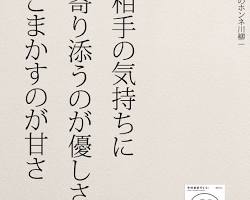 のホンネ川柳
相手の気持ちに
寄り添うのが優しさ
ごまかすのが甘さ